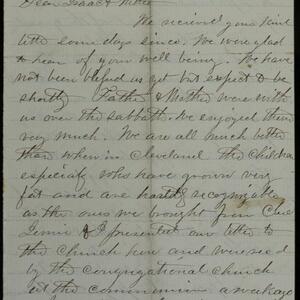 Dear Isaac &
We recieved your kind
letter some days since. We were glad
to hear of your well being. We have
not been blessed as yet but expect to be
shortly Father & Mother were with
us over the sabbath. We enjoyed them
very much. We are all much better
than when in Cleveland the children
especialy who have grown very
fat and are hardly recognizable
as the ones we brought from Cleve
Jennie & I presented our letter to
the Church here and were
by the congregational church
at the communion a week ago